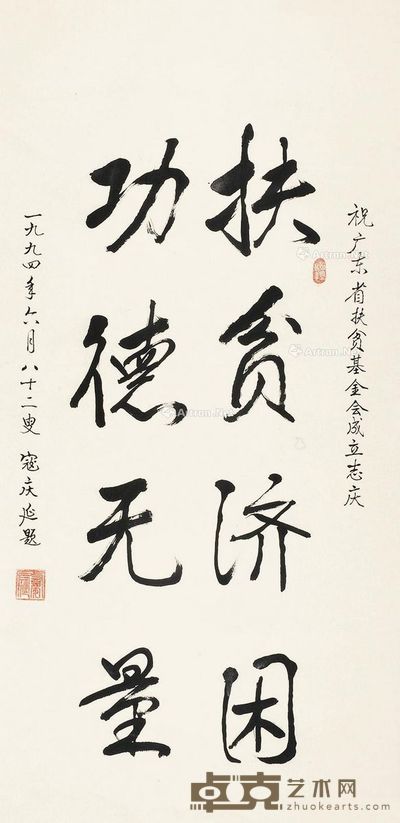 祝广东省扶贫基金会成立志庆
扶贫济困
功德无量
一九九四年六月八十二叟 寇庆延题
卓克艺术网
zhuokearts.com